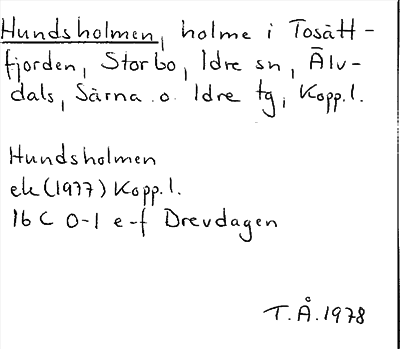 Hundsholmen, holme i Tosätt-
fjorden, Storbo, Idre sn, Älv-
dals, Särna o. Idre tg, Kopp.l.
Hundsholmen
ek (1977) Kopp.l.
16 C 0-1 e-f Drevdagen
T.Å. 1978